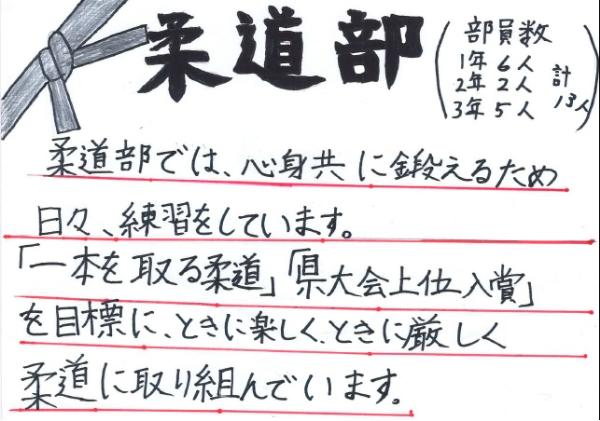 柔道部
部員数
1年 6人
2年 2人
3年 5人
計13人
柔道部では、心身共に鍛えるため
日々、練習をしています。
「一本を取る柔道」「県大会上位入賞」
を目標に、ときに楽しく、ときに厳しく
柔道に取り組んでいます。